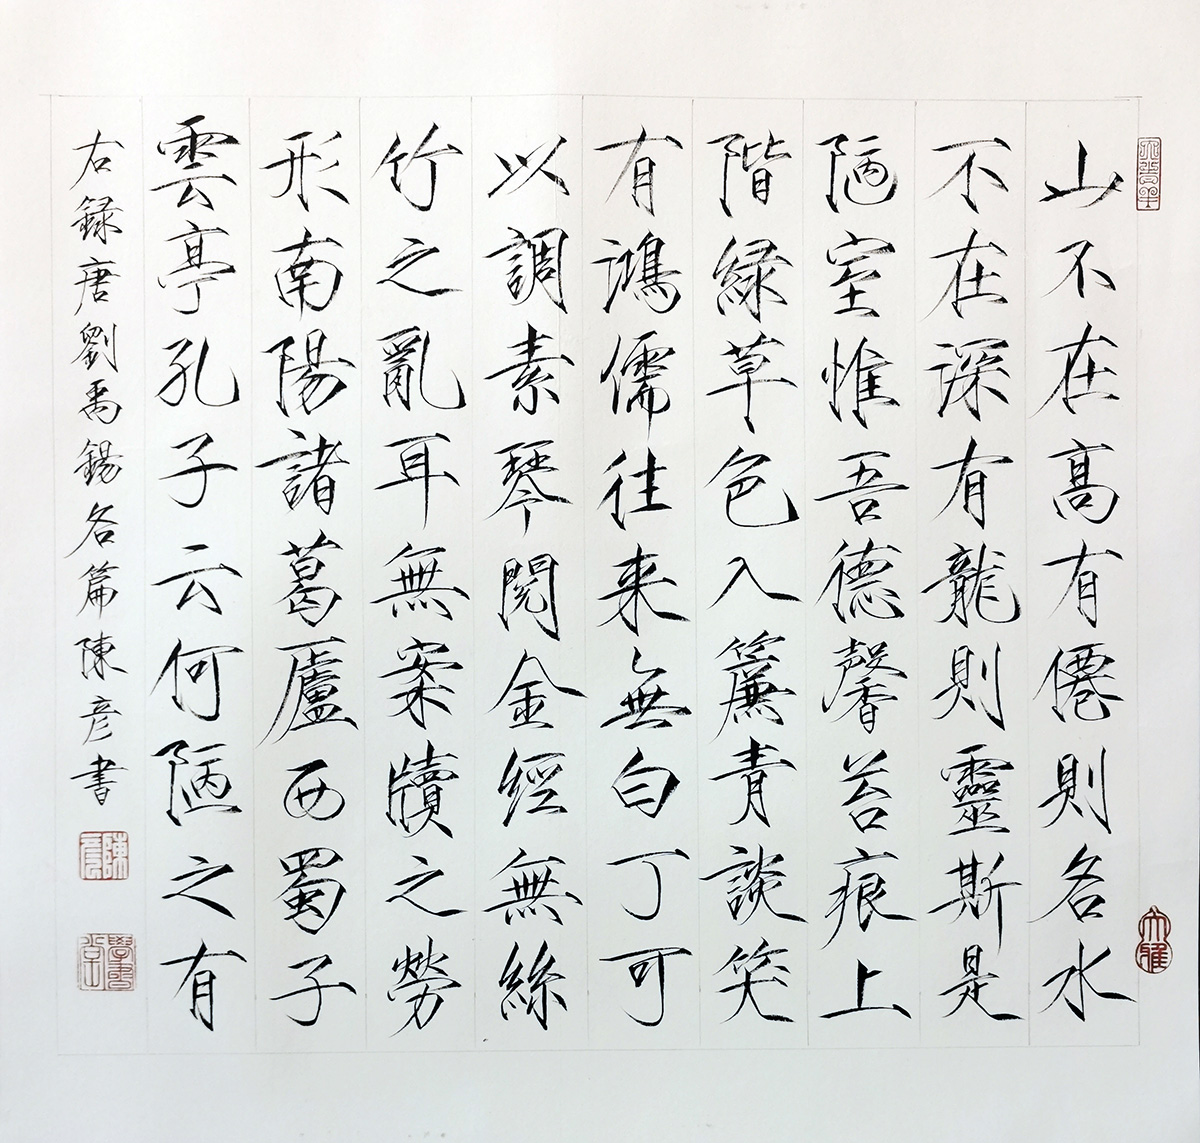 山不在高有僊則名水
不在深有龍則靈斯是
陋室惟吾德馨苔痕上
階緑草色入簾青談笑
有鴻儒往来無白丁可
以調素琴閱金經無絲
竹之亂耳無案牘之勞
形南陽諸葛廬西蜀子
雲亭孔子云何陋之有
右録唐劉禹錫名篇陳彦書
陳彦
大雅